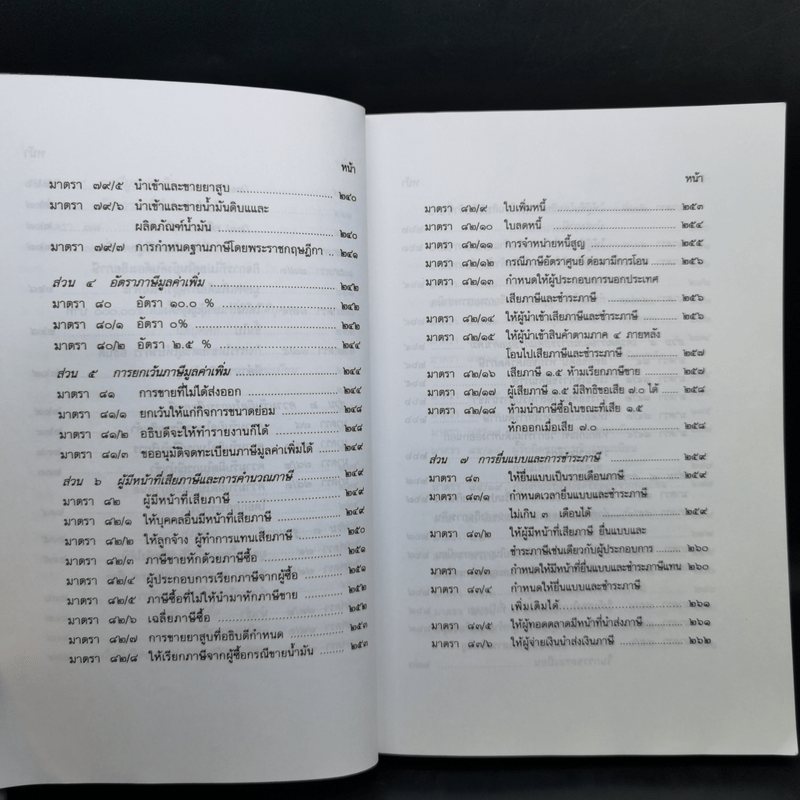 หน้า
มาตรา ๗๙/๕ นำเข้าและขายยาสูบ ................ ๒๔๐
มาตรา ๗๙/๖ นำเข้าและขายน้ำมันดิบและ
ผลิตภัณฑ์น้ำมัน ................ ๒๔๐
มาตรา ๗๙/๗ การกำหนดฐานภาษีโดยพระราชกฤษฎีกา .. ๒๔๑
ส่วน ๔ อัตราภาษีมูลค่าเพิ่ม ................ ๒๔๒
มาตรา ๘๐ อัตรา ๑๐.๐ % ................ ๒๔๒
มาตรา ๘๐/๑ อัตรา ๐% ................ ๒๔๒
มาตรา ๘๐/๒ อัตรา ๒.๕ % ................ ๒๔๔
ส่วน ๕ การยกเว้นภาษีมูลค่าเพิ่ม ................ ๒๔๔
มาตรา ๘๑ การขายที่ไม่ได้ส่งออก ................ ๒๔๔
มาตรา ๘๑/๑ ยกเว้นให้แก่กิจการขนาดย่อม ........ ๒๔๘
มาตรา ๘๑/๒ อธิบดีจะให้ทำรายงานก็ได้ ........ ๒๔๘
มาตรา ๘๑/๓ ขออนุมัติจดทะเบียนภาษีมูลค่าเพิ่มได้ .. ๒๔๘
ส่วน ๖ ผู้มีหน้าที่เสียภาษีและการคำนวณภาษี ........ ๒๔๙
มาตรา ๘๒ ผู้มีหน้าที่เสียภาษี ................ ๒๔๙
มาตรา ๘๒/๑ ให้บุคคลอื่นมีหน้าที่เสียภาษี ........ ๒๔๙
มาตรา ๘๒/๒ ให้ลูกจ้าง ผู้ทำการแทนเสียภาษี ........ ๒๕๐
มาตรา ๘๒/๓ ภาษีขายหักด้วยภาษีซื้อ ........ ๒๕๑
มาตรา ๘๒/๔ ผู้ประกอบการเรียกภาษีจากผู้ซื้อ ........ ๒๕๑
มาตรา ๘๒/๕ ภาษีซื้อที่ไม่ให้นำมาหักภาษีขาย ........ ๒๕๒
มาตรา ๘๒/๖ เฉลี่ยภาษีซื้อ ................ ๒๕๒
มาตรา ๘๒/๗ การขายยาสูบที่อธิบดีกำหนด ........ ๒๕๓
มาตรา ๘๒/๘ ให้เรียกภาษีจากผู้ซื้อกรณีขายน้ำมัน .... ๒๕๓
หน้า
มาตรา ๘๒/๙ ใบเพิ่มหนี้ ................ ๒๕๓
มาตรา ๘๒/๑๐ ใบลดหนี้ ................ ๒๕๔
มาตรา ๘๒/๑๑ การจำหน่ายหนี้สูญ ................ ๒๕๕
มาตรา ๘๒/๑๒ กรณีภาษีอัตราศูนย์ ต่อมามีการโอน ...... ๒๕๖
มาตรา ๘๒/๑๓ กำหนดให้ผู้ประกอบการนอกประเทศ
เสียภาษีและชำระภาษี ................ ๒๕๖
มาตรา ๘๒/๑๔ ให้ผู้นำเข้าเสียภาษีและชำระภาษี ........ ๒๕๖
มาตรา ๘๒/๑๕ ให้ผู้นำเข้าสินค้าตามภาค ๔ ภายหลัง
โอนไปเสียภาษีและชำระภาษี ................ ๒๕๗
มาตรา ๘๒/๑๖ เสียภาษี ๑.๕ ห้ามเรียกภาษีขาย ........ ๒๕๗
มาตรา ๘๒/๑๗ ผู้เสียภาษี ๑.๕ มีสิทธิขอเสีย ๗.๐ ได้ .. ๒๕๘
มาตรา ๘๒/๑๘ ห้ามนำภาษีซื้อในขณะที่เสีย ๑.๕
หักออกเมื่อเสีย ๗.๐ ................ ๒๕๘
ส่วน ๗ การยื่นแบบและการชำระภาษี ................ ๒๕๙
มาตรา ๘๓ ให้ยื่นแบบเป็นรายเดือนภาษี ........ ๒๕๙
มาตรา ๘๓/๑ กำหนดเวลายื่นแบบและชำระภาษี
ไม่เกิน ๓ เดือนได้ ................ ๒๕๙
มาตรา ๘๓/๒ ให้ผู้มีหน้าที่เสียภาษี ยื่นแบบและ
ชำระภาษีเช่นเดียวกับผู้ประกอบการ ........ ๒๖๐
มาตรา ๘๓/๓ กำหนดให้มีหน้าที่ยื่นแบบและชำระภาษีแทน ๒๖๐
มาตรา ๘๓/๔ กำหนดให้ยื่นแบบและชำระภาษี
เพิ่มเติมได้ ................ ๒๖๑
มาตรา ๘๓/๕ ให้ผู้ทอดตลาดมีหน้าที่นำส่งภาษี ........ ๒๖๑
มาตรา ๘๓/๖ ให้ผู้จ่ายเงินนำส่งเงินภาษี ........ ๒๖๒